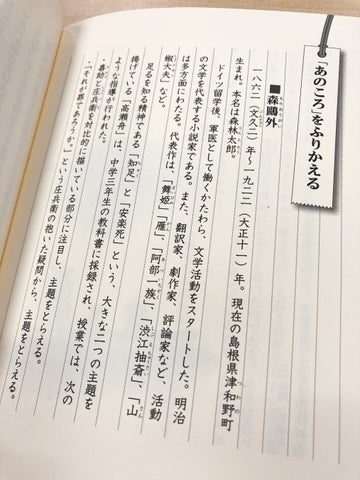 「あのころ」をふりかえる
■森鷗外
一八六二（文久二）年～一九二二（大正十一）年。現在の島根県津和野町
生まれ。本名は森林太郎。
ドイツ留学後、軍医として働くかたわら、文学活動をスタートした。明治
の文学を代表する小説家である。また、翻訳家、劇作家、評論家など、活動
は多方面にわたる。代表作は、「舞姫」「雁」、「阿部一族」、「渋江抽斎」、「山
椒大夫」など。
足るを知る精神である「知足」と「安楽死」という、大きな二つの主題を
掲げている「高瀬舟」は、中学三年生の教科書に採録され、授業では、次の
ような指導が行われた。
・喜助と庄兵衛を対比的に描いている部分に注目し、主題をとらえる。
・「それが罪であろうか。」という庄兵衛の抱いた疑問から、主題をとらえる。